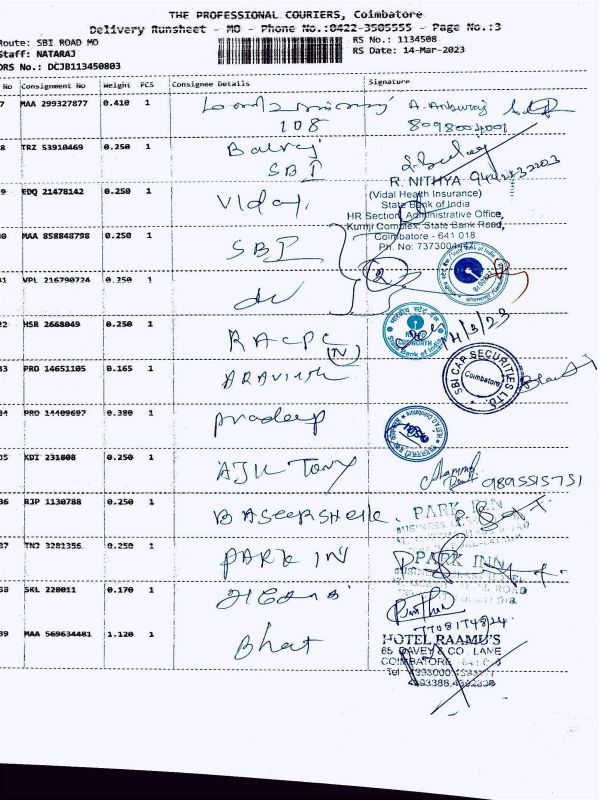 THE PROFESSIONAL COURIERS, Coimbatore
Delivery Runsheet - MO - Phone No.:0422-3505555 - Page No.:3
Route: SBI ROAD MO
RS No.: 1134508
Staff: NATARAJ
RS Date: 14-Mar-2023
DRS No.: DCJB113450803
No Consignment No Weight PCS Consignee Details Signature
7 MAA 299327877 0.410 1
108 8098004001
8 TRZ 53910469 0.250 1 Balraj
SBI
R. NITHYA
9 EDQ 21478142 0.250 1 Vidal
(Vidal Health Insurance)
State Bank of India
HR Section, Administrative Office,
Kumji Complex, State Bank Road,
Coimbatore - 641 018.
0 MAA 858848798 0.250 1 SBI
2
1 VPL 216790724 0.250 1
2 MSR 2668049 0.250 1 RACPC
(IV)
State Bank of India
14/3/23
3 PRO 14651105 0.165 1 ARAVINTH
SBI CAP SECURITIES LTD.
Coimbatore
4 PRO 14409697 0.380 1 Pradeep
5 KDI 231808 0.250 1 AJU Tony
9895515751
6 RJP 1130788 0.250 1
PARK INN
7 TNJ 3281356 0.250 1 PARK IN
PARK INN
8 SKL 220011 0.170 1
9 MAA 569634481 1.120 1 Bhat
HOTEL RAAMU'S
65 DAVEY & CO. LANE
COIMBATORE